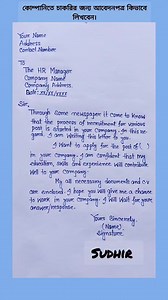 কোম্পানিতে চাকরির জন্য আবেদনপত্র কিভাবে
লিখবেন।
Your Name
Address
Contact Number
To
The HR Manager
Company Name
Company Address
Date: xx/xx/xxxx
Sir,
Through Some newspaper it come to know
that the process of recruitment for various
post is started in your Company. In this re-
gard. I am writing this letter to you.
I Want to apply for the post of (. )
in your Company. I am confident that my
education, skills and experience will contribute
Well to your Company.
My all necessary documents and cv
are enclosed. I hope you will give me a chance
to work in your Company. I will Wait for your
answer/response.
Yours Sincerely
(Name)
Signature
SUDHIR